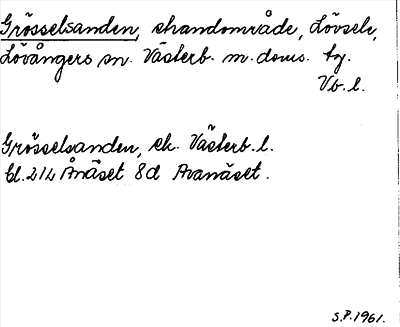 Grösselsanden, strandområde, Lövsele,
Lövångers sn. Västerb. m. doms. tg.
Vb. l.
Grösselsanden, ek. Västerb. l.
bl. 214 Ånäset 8d Avanäset.
S.P. 1961.